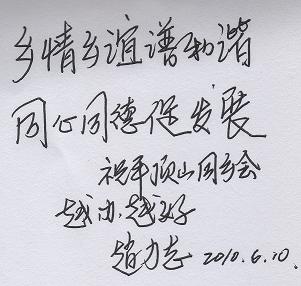 乡情乡谊谱和谐
同心同德促发展
祝平顶山同乡会
越办越好
赵力志 2010.6.10.